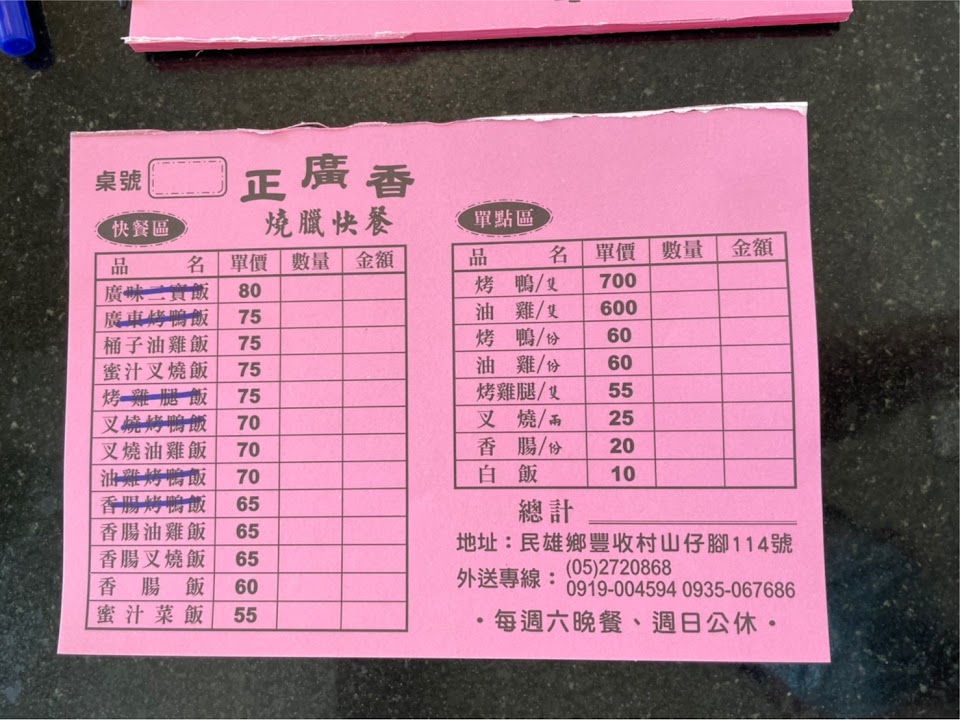 桌號
正廣香
燒臘快餐
快餐區
品名 單價 數量 金額
廣味二寶飯 80
廣東烤鴨飯 75
桶子油雞飯 75
蜜汁叉燒飯 75
烤雞腿飯 75
叉燒烤鴨飯 70
叉燒油雞飯 70
油雞烤鴨飯 70
香腸烤鴨飯 65
香腸油雞飯 65
香腸叉燒飯 65
香腸飯 60
蜜汁菜飯 55
單點區
品名 單價 數量 金額
烤鴨/隻 700
油雞/隻 600
烤鴨/份 60
油雞/份 60
烤雞腿/隻 55
叉燒/兩 25
香腸/份 20
白飯 10
總計
地址：民雄鄉豐收村山仔腳114號
外送專線：(05)2720868
0919-004594 0935-067686
・每週六晚餐、週日公休・